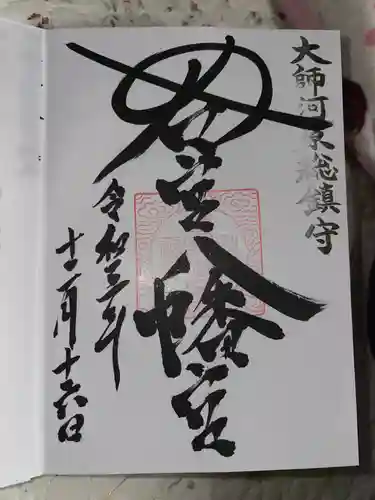 大師河原総鎮守
若宮八幡宮
令和三年
十二月十六日